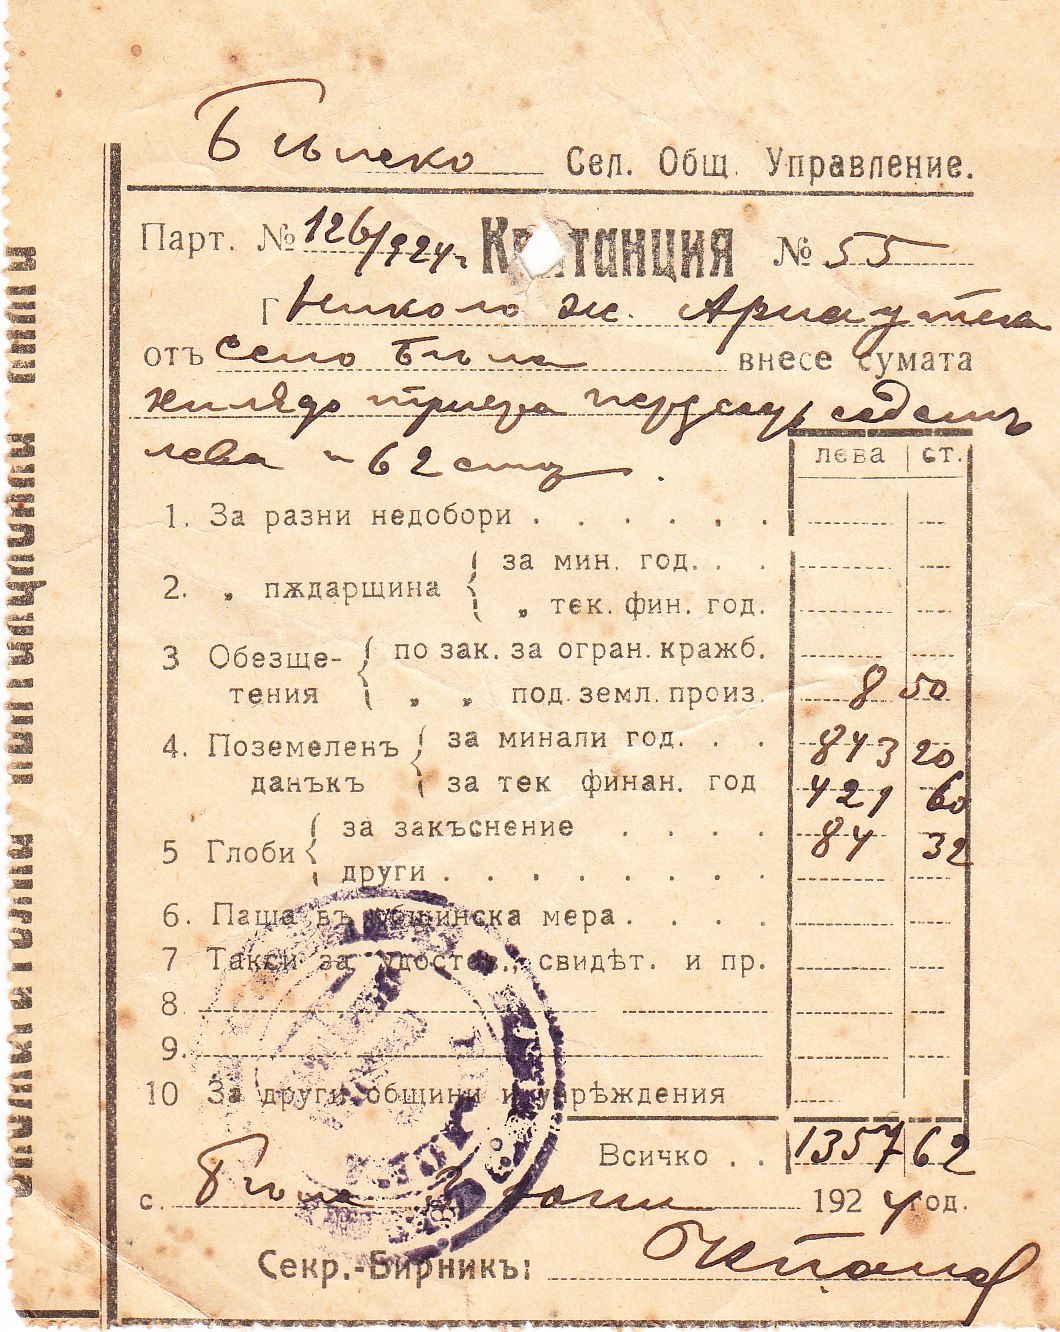 Бѣлско Сел. Общ. Управление.
Парт. № 126/924 г. Квитанция № 55
Г Никола Ж. Арнаутска
отъ село Бѣла внесе сумата
хилядо триста педесеть и седемь
лева и 62 стот.
лева ст.
1. За разни недобори . . . . . .
2. „ пѫдарщина за мин. год. . .
„ тек. фин. год.
3 Обезще- по зак. за огран. кражб.
тения „ „ под. земл. произ. 8 50
4. Поземеленъ за минали год. . . 843 20
данъкъ за тек финан. год 421 60
5 Глоби за закъснение . . . . 84 32
други . . . . . . . .
6. Паша въ общинска мера . . . .
7 Такси за удостов., свидѣт. и пр.
8.
9.
10 За други общини и учрѣждения
Всичко . . 1357 62
с. Бѣла 3 юни 1924 год.
Секр.-Бирникъ: